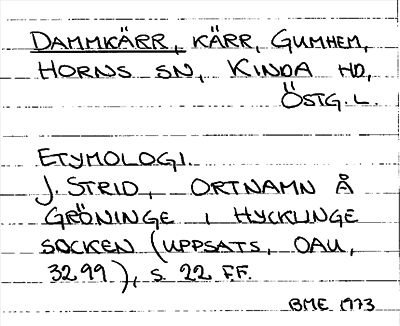 DAMMKÄRR, KÄRR, GUMHEM,
HORNS SN, KINDA HD,
ÖSTG. L.
ETYMOLOGI.
J. STRID, ORTNAMN Å
GRÖNINGE I HYCKLINGE
SOCKEN (UPPSATS, OAU,
3299), S. 22 F.F.
BME 1973